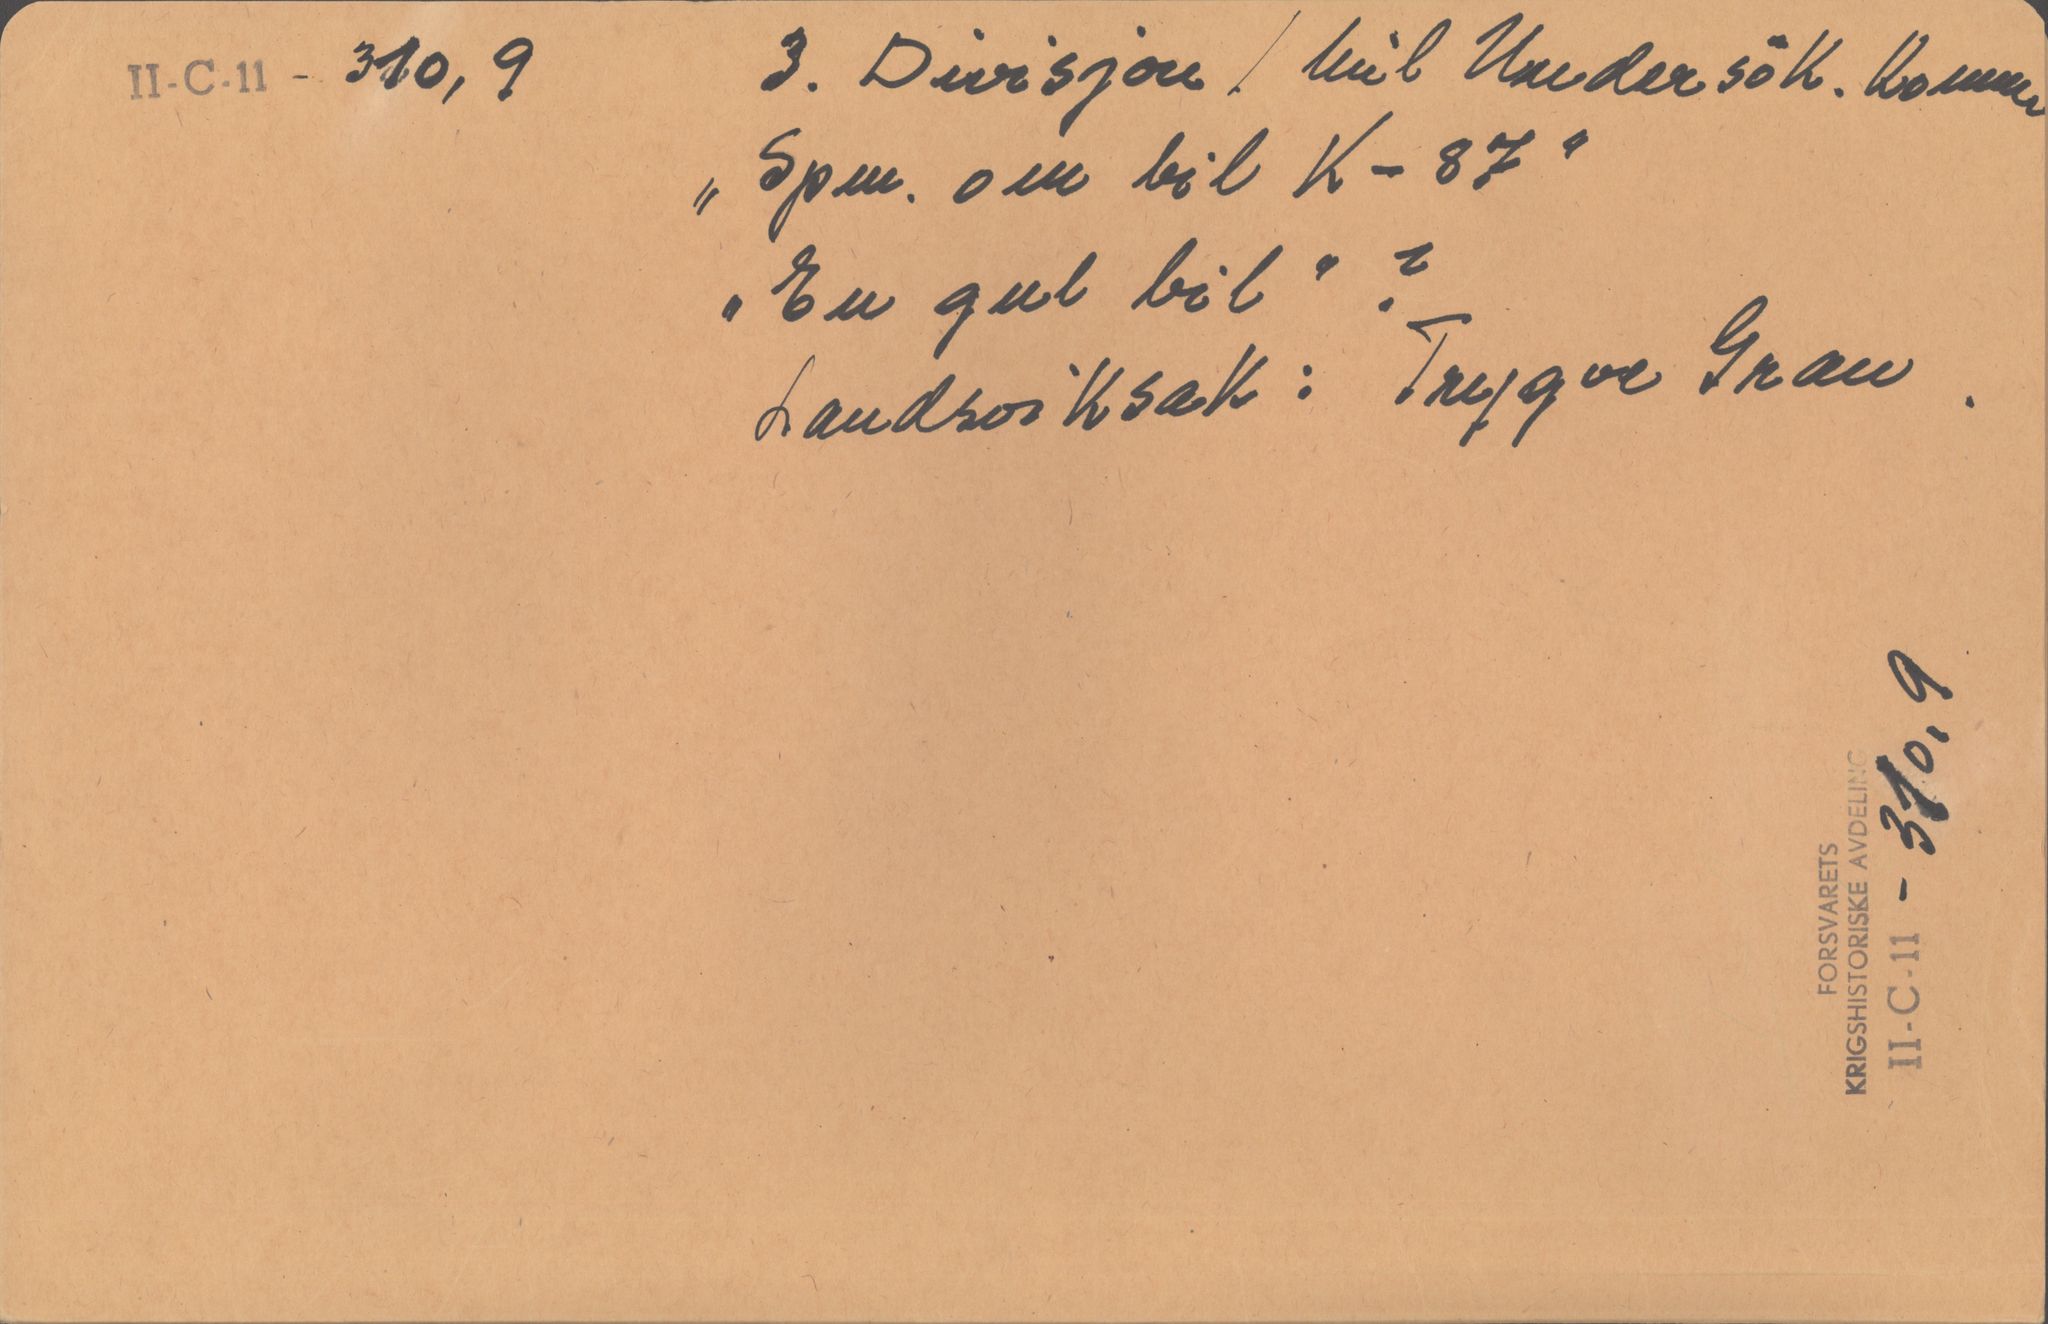 II-C-11 - 310,9
3. Divisjon / Mil Undersök. Komm
„Spm. om bil K-87"
„En gul bil" ?
Landsviksak: Trygve Gran.
FORSVARETS
KRIGSHISTORISKE AVDELING
II-C-11 - 310,9